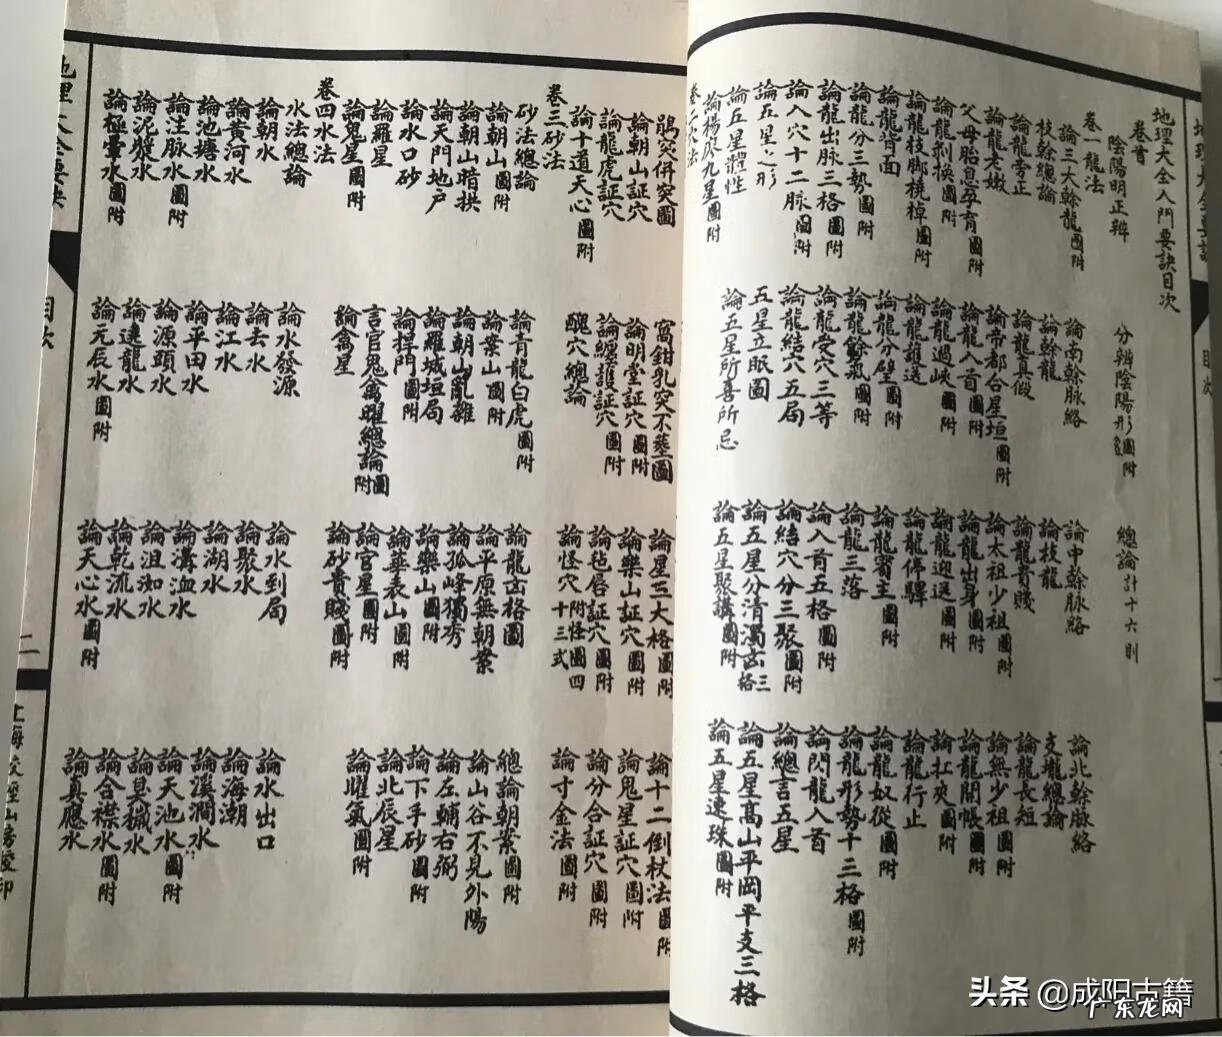 地理大全要訣
目次
地理大全入門要訣目次
卷首
陰陽明正辨 分辨陰陽形象圖附 總論計十六則
卷一龍法
論三大幹龍圖附 論南幹脉絡 論中幹脉絡 論北幹脉絡
枝幹總論 論幹龍 論枝龍 支壠總論
論龍旁正 論龍真假 論龍貴賤 論龍長短
論龍老嫩 論帝都合星垣圖附 論太祖少祖圖附 論無少祖圖附
父母胎息孕育圖附 論龍入首圖附 論龍出身圖附 論龍開帳圖附
論龍剝換圖附 論龍過峽圖附 論龍迎送圖附 論扛夾圖附
論龍枝脚橈棹圖附 論龍護送 論龍停驛 論龍行止
論龍背面 論龍分壁圖附 論龍賓主圖附 論龍奴從圖附
論龍分三勢圖附 論龍餘氣圖附 論龍三落 論龍形勢十三格圖附
論龍出脉三格圖附 論龍受穴三等 論入首五格圖附 論閃龍入首
論入穴十二脉圖附 論龍結穴五局 論結穴分三聚圖附 論總言五星
論五星之形 五星立眠圖 論五星分清濁㐫三格 論五星高山平岡平支三格
論五星體性 論五星所喜所忌 論五星聚講圖附 論五星連珠圖附
論楊廖九星圖附
卷二穴法
突併突圖 窩鉗乳突不葬圖 論星三大格圖附 論十二倒杖法圖附
論朝山証穴 論明堂証穴圖附 論樂山証穴圖附 論鬼星証穴圖附
論龍虎証穴 論纏護証穴圖附 論毡唇証穴圖附 論分合証穴圖附
論十道天心圖附 醜穴總論 論怪穴附怪圖四十三式 論寸金法圖附
卷三砂法
砂法總論 論青龍白虎圖附 論龍㐫格圖 總論朝案圖附
論朝山圖附 論案山圖附 論平原無朝案 論山谷不見外陽
論朝山暗拱 論朝山亂雜 論孤峰獨秀 論左輔右弼
論天門地户 論羅城垣局 論樂山圖附 論下手砂圖附
論水口砂 論捍門圖附 論華表山圖附 論北辰星
論羅星 言官鬼禽曜總論圖附 論官星圖附 論曜氣圖附
論鬼星圖附 論禽星 論砂貴賤圖附
卷四水法
水法總論 論水發源 論水到局 論水出口
論朝水 論去水 論聚水 論海潮
論黃河水 論江水 論湖水 論溪澗水
論池塘水 論平田水 論溝洫水 論天池水圖附
論注脉水圖附 論源頭水 論沮洳水 論臭穢水
論泥漿水 論遶龍水 論乾流水 論合襟水圖附
論極暈水圖附 論元辰水圖附 論天心水圖附 論真應水
地理大全要訣
目次
二
上海校經山房發印
头条 @成阳古籍
广东龙网